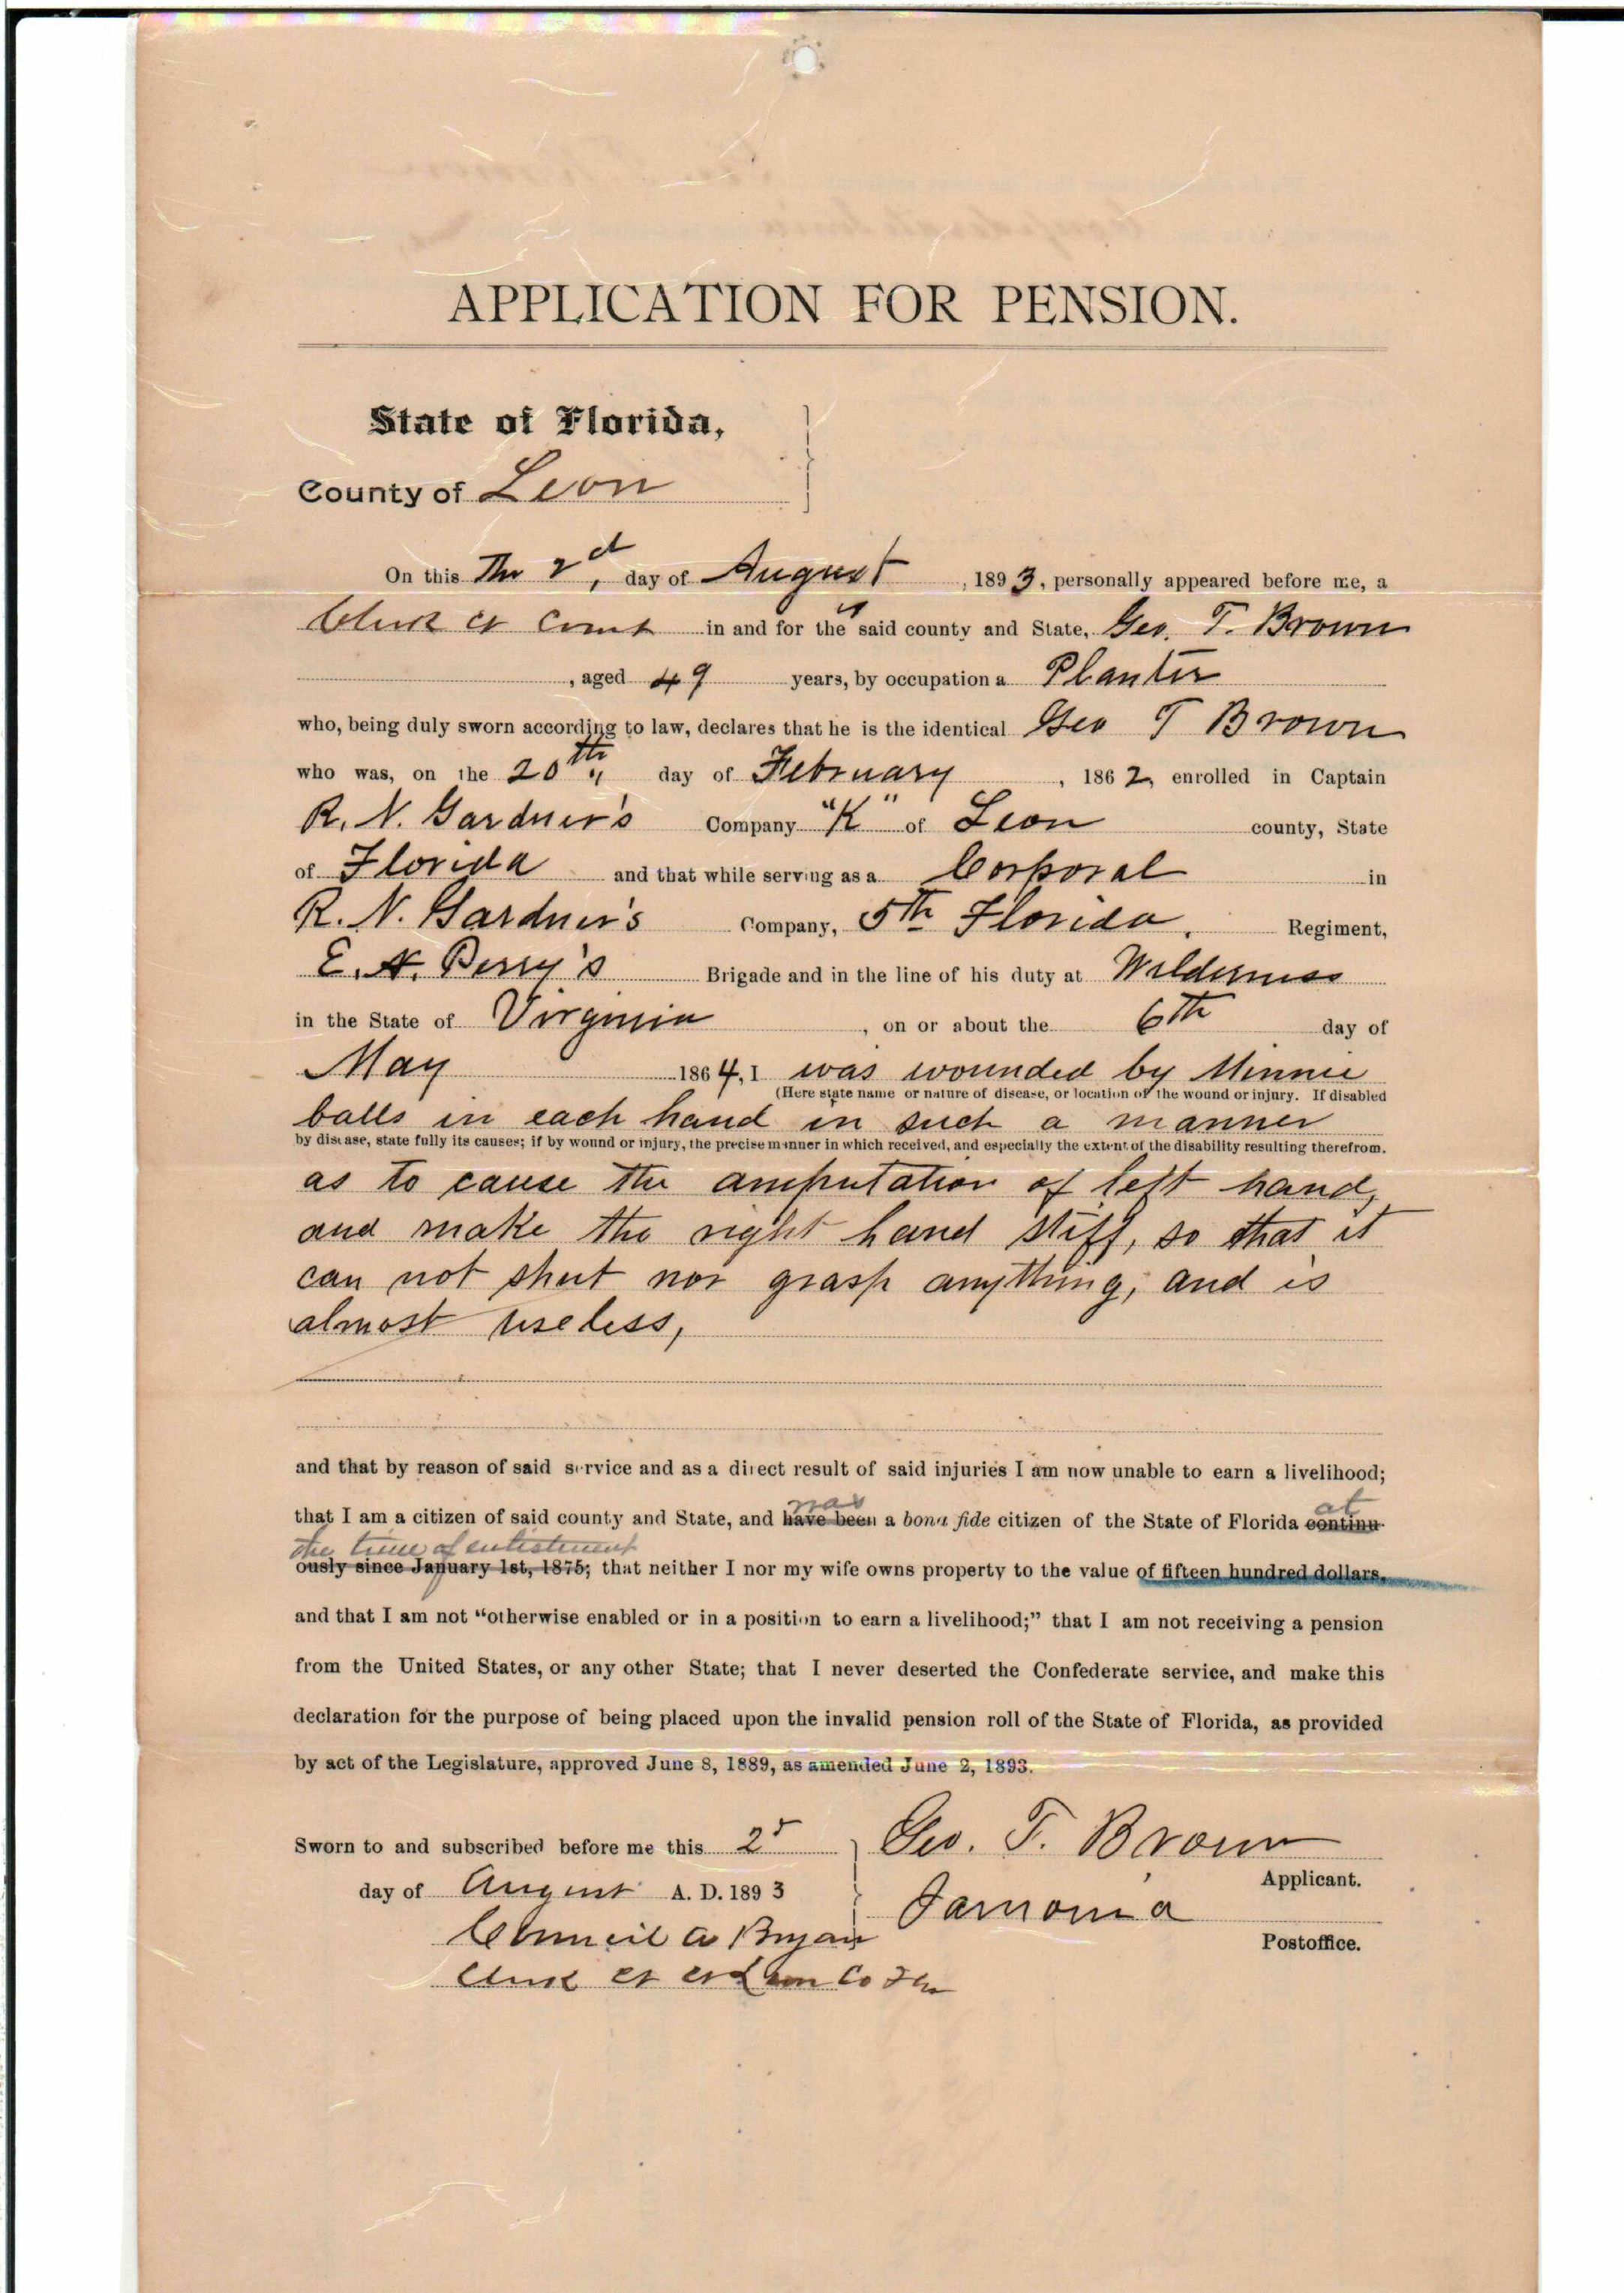 APPLICATION FOR PENSION.
State of Florida,
County of Leon
On this The 2d, day of August, 1893, personally appeared before me, a
Clerk Ct Court in and for the said county and State, Geo. T. Brown
, aged 49 years, by occupation a Planter
who, being duly sworn according to law, declares that he is the identical Geo T Brown
who was, on the 20th day of February, 1862, enrolled in Captain
R. N. Gardner's Company "K" of Leon county, State
of Florida and that while serving as a Corporal in
R. N. Gardner's Company, 5th Florida. Regiment,
E. A. Perry's Brigade and in the line of his duty at Wilderness
in the State of Virginia, on or about the 6th day of
May 1864, I was wounded by Minnie
(Here state name or nature of disease, or location of the wound or injury. If disabled
balls in each hand in such a manner
by disease, state fully its causes; if by wound or injury, the precise manner in which received, and especially the extent of the disability resulting therefrom.
as to cause the amputation of left hand,
and make the right hand stiff, so that it
can not shut nor grasp anything, and is
almost useless,
and that by reason of said service and as a direct result of said injuries I am now unable to earn a livelihood;
was at
that I am a citizen of said county and State, and have been a bona fide citizen of the State of Florida continu-
the time of enlistment
ously since January 1st, 1875; that neither I nor my wife owns property to the value of fifteen hundred dollars,
and that I am not "otherwise enabled or in a position to earn a livelihood;" that I am not receiving a pension
from the United States, or any other State; that I never deserted the Confederate service, and make this
declaration for the purpose of being placed upon the invalid pension roll of the State of Florida, as provided
by act of the Legislature, approved June 8, 1889, as amended June 2, 1893.
Sworn to and subscribed before me this 2d Geo. T. Brown
Applicant.
day of August A. D. 1893
Iamonia
Council A Bryan
Postoffice.
Clerk Ct Ct Leon Co Fla